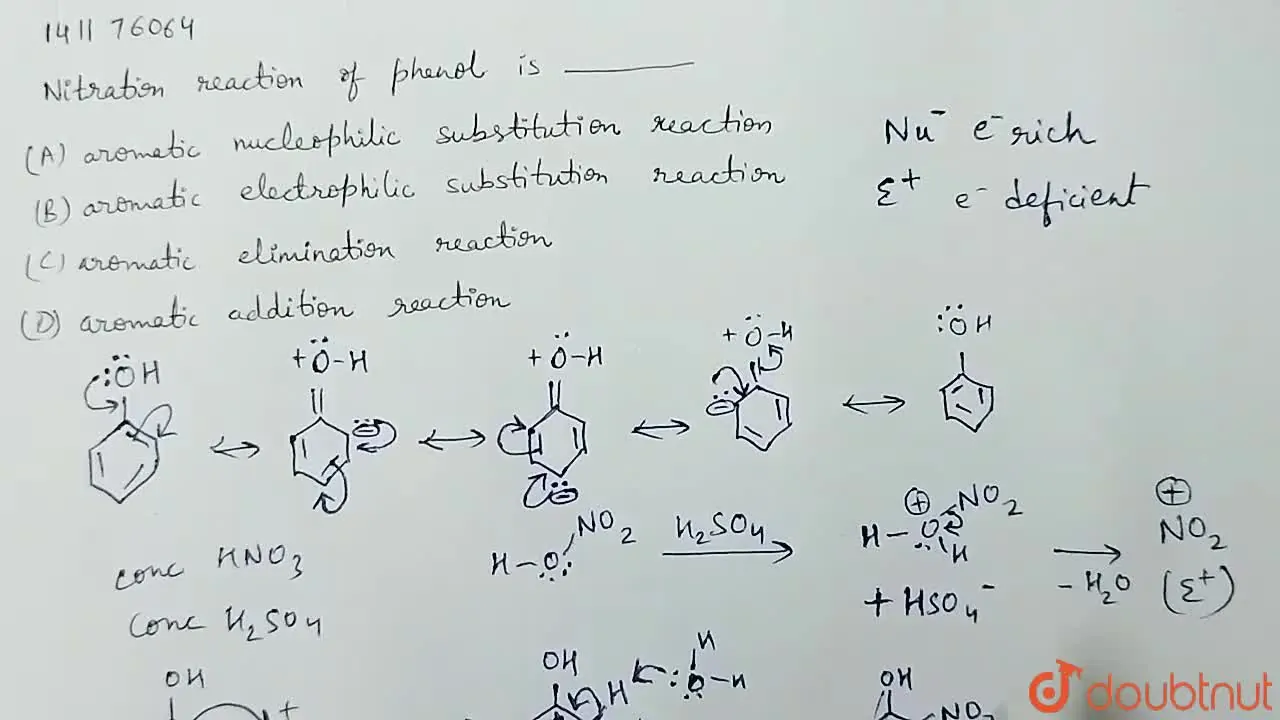 1411 76064
Nitration reaction of phenol is ______
(A) aromatic nucleophilic substitution reaction
(B) aromatic electrophilic substitution reaction
(C) aromatic elimination reaction
(D) aromatic addition reaction
Nu⁻ e⁻ rich
Ɛ⁺ e⁻ deficient
:ÖH
+ Ö-H
+ Ö-H
+ Ö-H
:ÖH
conc HNO₃
conc H₂SO₄
H-O NO₂
H₂SO₄
⊕
H-O NO₂
H
+ HSO₄⁻
- H₂O
⊕
NO₂
(Ɛ⁺)
OH
+
OH
H
H
:O-H
OH
NO₂
doubtnut